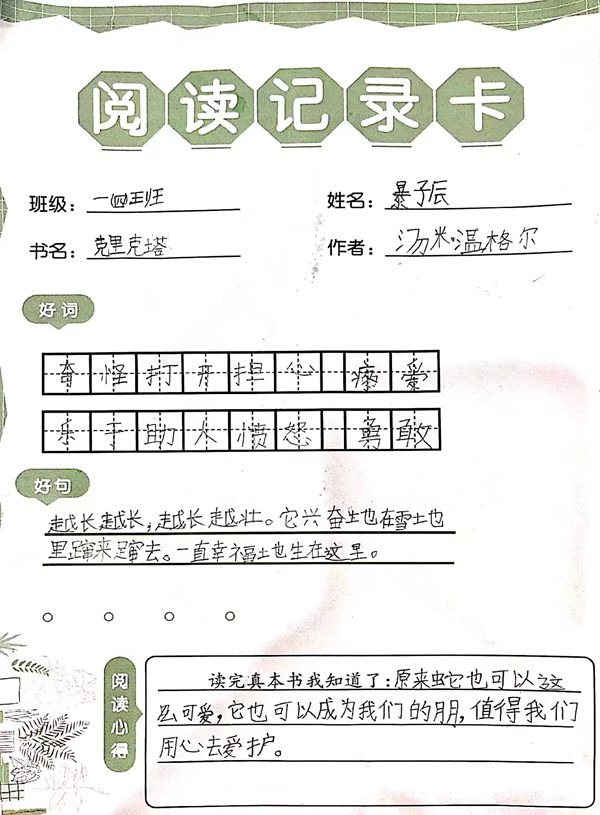 阅读记录卡
班级：一四班 姓名：暴子辰
书名：克里克塔 作者：汤米·温格尔
好词
奇怪打开捍心 瘝爱
乐于助人愤怒 勇敢
好句
越长越长，越长越壮。它兴奋地在雪地
里蹿来蹿去。一直幸福地生在这里。
阅读心得
读完真本书我知道了：原来蛇它也可以这
么可爱，它也可以成为我们的朋，值得我们
用心去爱护。